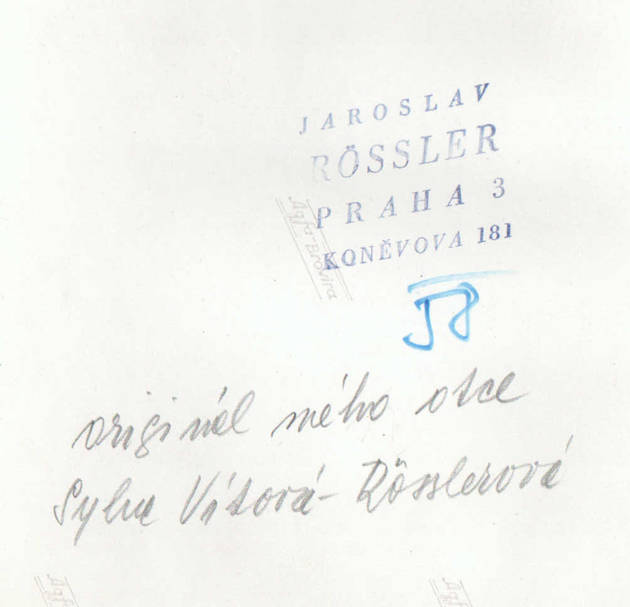 JAROSLAV
RÖSSLER
PRAHA 3
KONĚVOVA 181
Agfa-Brovira
JR
originál mého otce
Sylva Vítová-Rösslerová
Agfa
Agfa